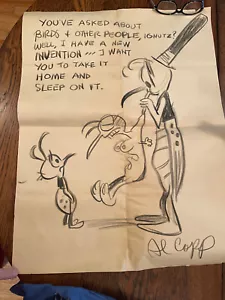 YOU'VE ASKED ABOUT
BIRDS & OTHER PEOPLE, IGNUTZ?
WELL, I HAVE A NEW
INVENTION --- I WANT
YOU TO TAKE IT
HOME AND
SLEEP ON IT.
Al Capp